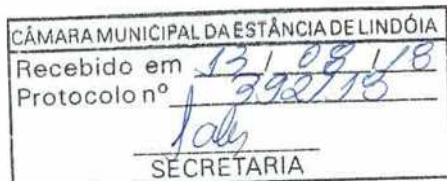 CÂMARA MUNICIPAL DA ESTÂNCIA DE LINDÓIA
Recebido em 13 / 08 / 18
Protocolo nº 392/18
SECRETARIA